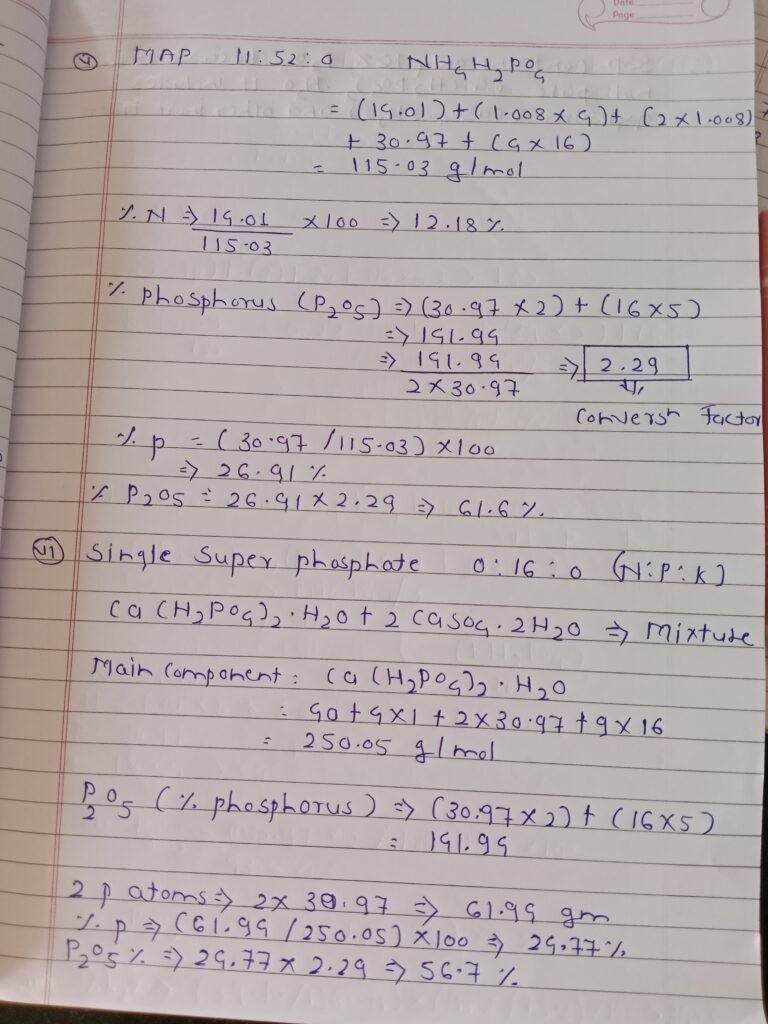 Date
Page
(v) MAP 11:52:0 NH4H2PO4
= (14.01) + (1.008 x 4) + (2 x 1.008)
+ 30.97 + (4 x 16)
= 115.03 g/mol
% N => 14.01/115.03 x 100 => 12.18 %.
% phosphorus (P2O5) => (30.97 x 2) + (16 x 5)
=> 141.94
=> 141.94/2 x 30.97 => 2.29
Conversn factor
% p = (30.97 / 115.03) x 100
=> 26.91 %
% P2O5 = 26.91 x 2.29 => 61.6 %.
(vi) Single Super phosphate 0:16:0 (N:P:K)
Ca(H2PO4)2.H2O + 2 CaSO4.2H2O => Mixture
Main Component: Ca(H2PO4)2.H2O
= 40 + 4x1 + 2x30.97 + 9x16
= 250.05 g/mol
P2O5 (% phosphorus) => (30.97 x 2) + (16 x 5)
= 141.94
2 p atoms => 2 x 30.97 => 61.94 gm
% p => (61.94 / 250.05) x 100 => 24.77 %
P2O5 % => 24.77 x 2.29 => 56.7 %